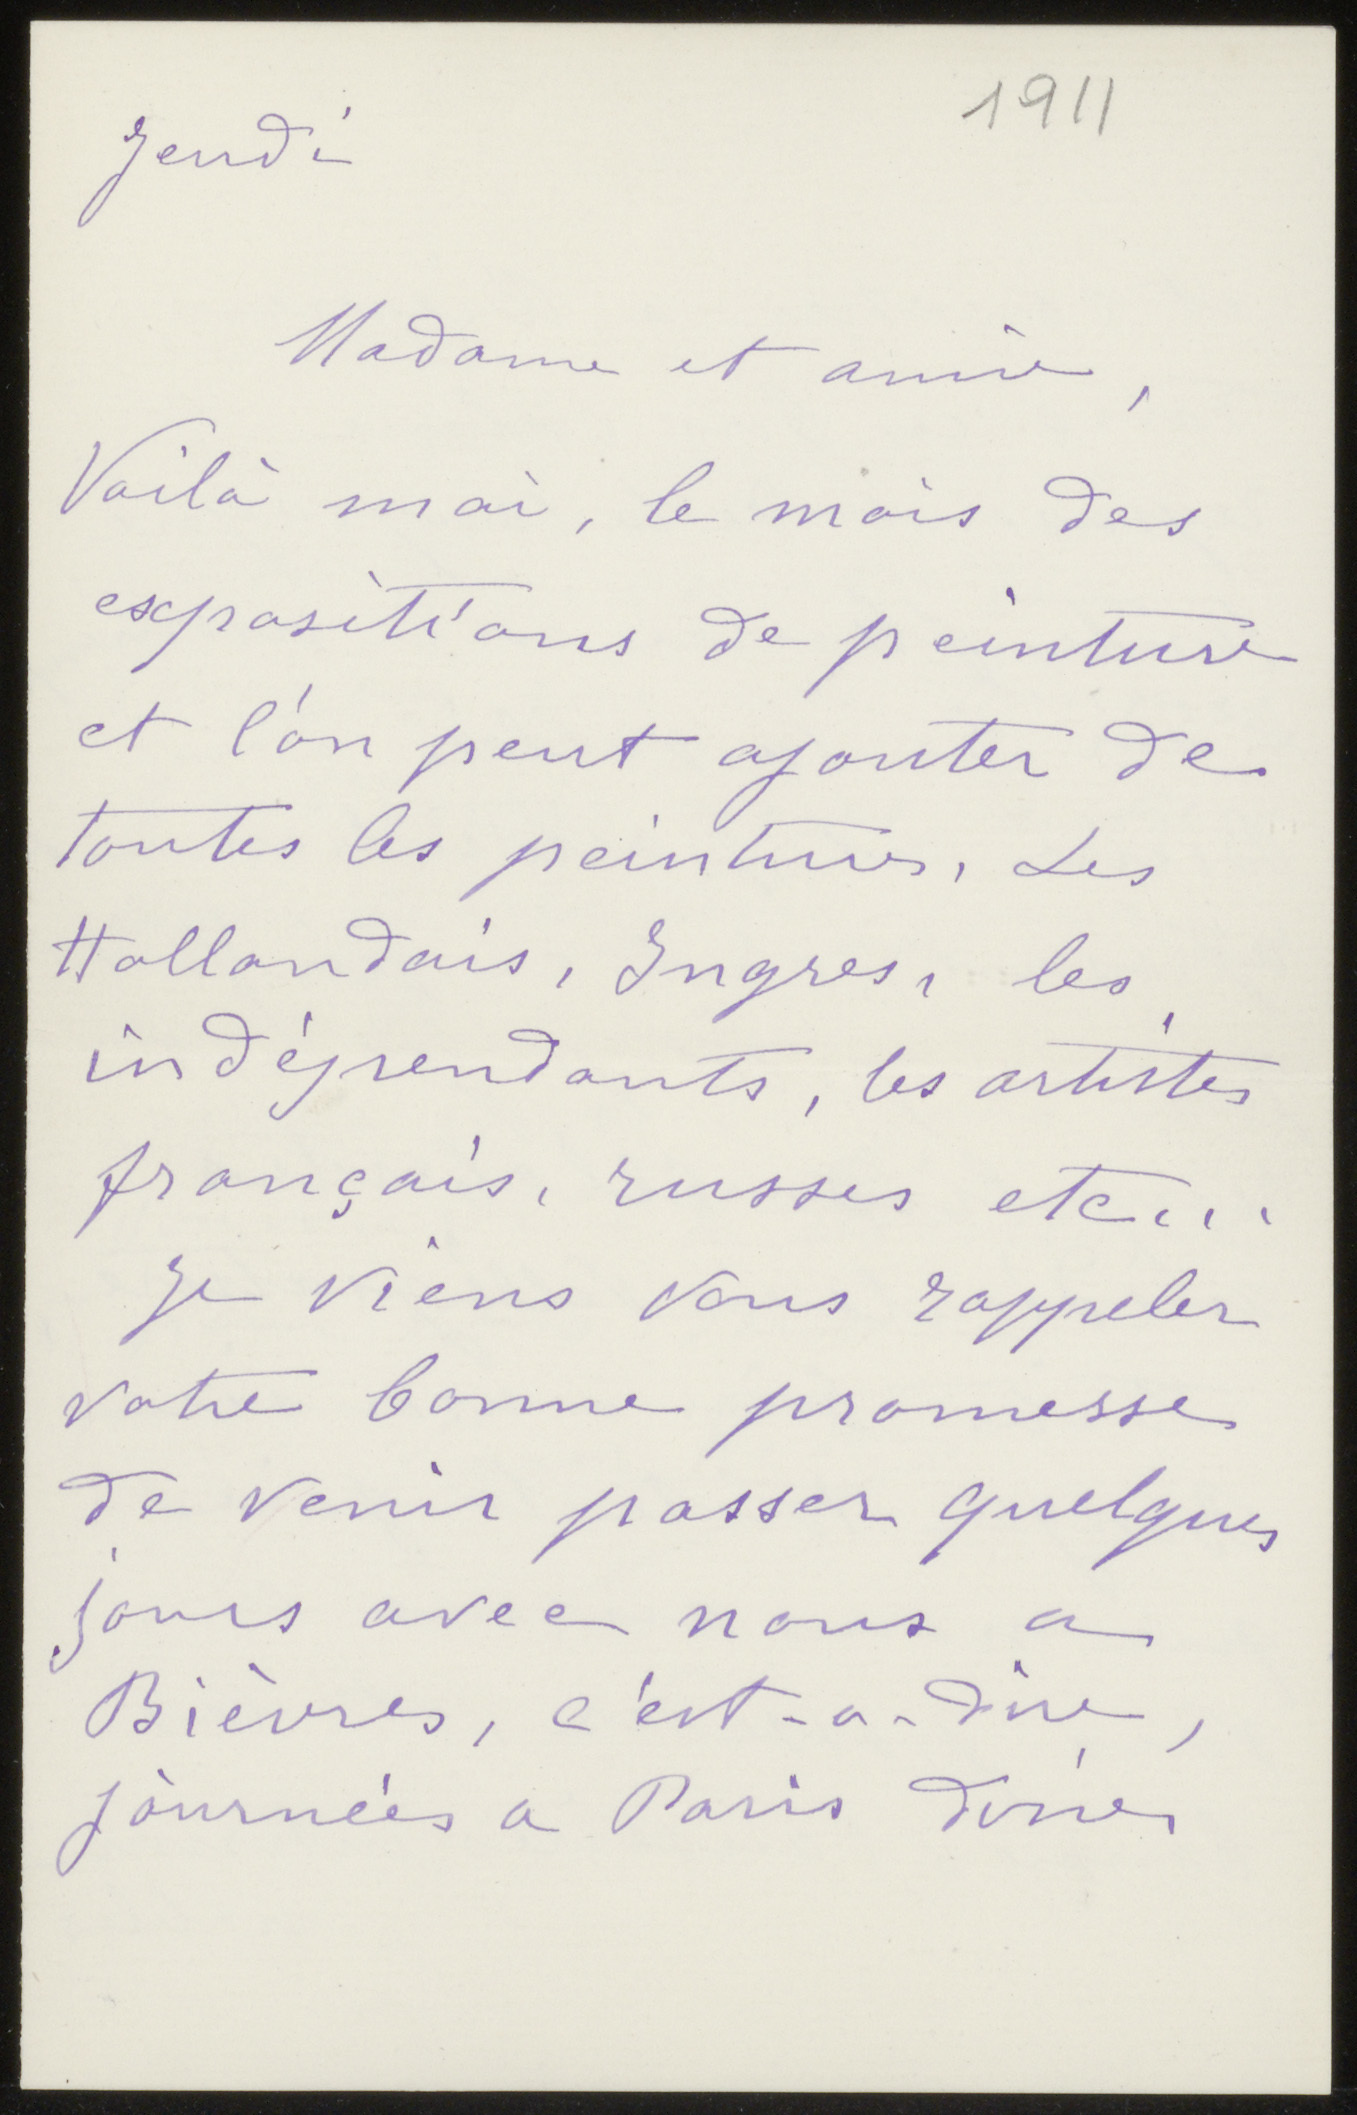 1911
Jeudi
Madame et amie,
Voilà mai, le mois des
expositions de peinture
et l'on peut ajouter de
toutes les peintures. Les
Hollandais, Ingres, les
indépendants, les artistes
français, russes etc...
Je viens vous rappeler
votre bonne promesse
de venir passer quelques
jours avec nous a
Bièvres, c'est-a-dire,
journées a Paris diner